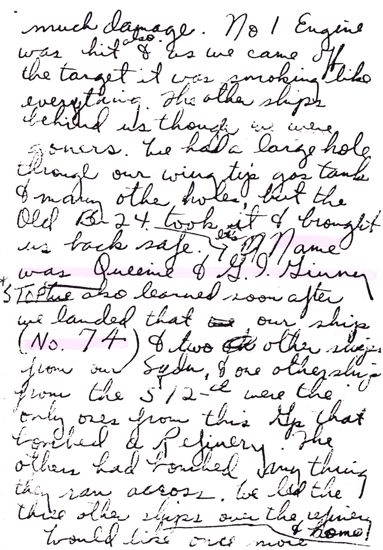 much damage. No 1 Engine
was hit also & as we came off
the target it was smoking like
everything. The other ships
behind us though we were
goners. We had a large hole
through our wing tip gas tank
& many othe holes, but the
Old B-24 took it & brought
us back safe. Name
was Queenie & G.I. Ginney
* STOP we also learned soon after
we landed that our ship
(No. 74) & two other ships
from our Sqdn, & one other ship
from the 512th were the
only ones from this Gp that
bombed a Refinery. The
others had bombed any thing
they ran across. We led the
three other ships over the refinery
& home!
Would like once more